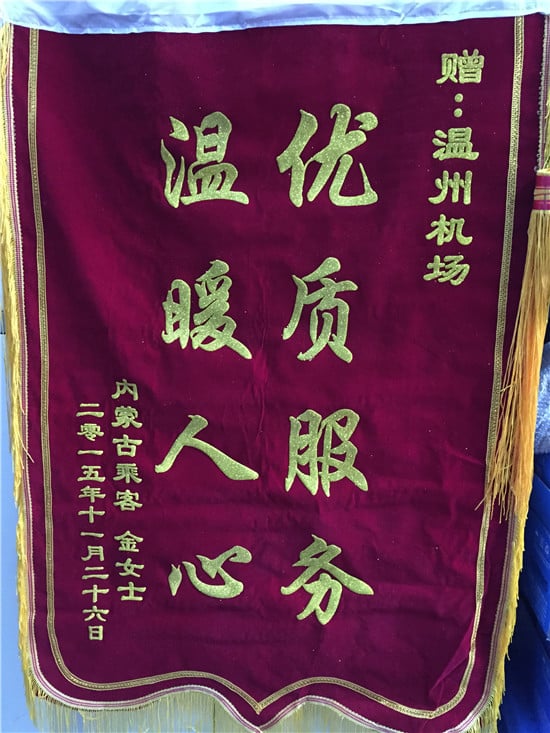 赠：温州机场
优质服务
温暖人心
内蒙古乘客 金女士
二零一五年十一月二十六日